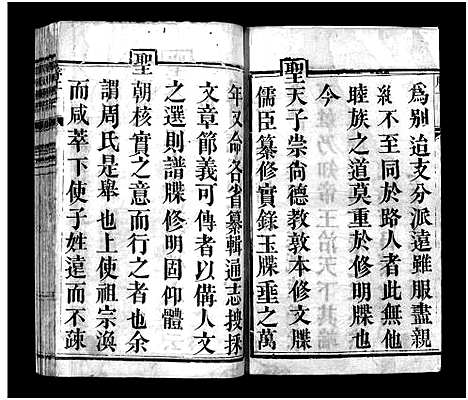 為別迨支分派遠雖服盡親
紟不至同於路人者此無他
睦族之道莫重於修明牒也
今
聖天子崇尚德教敦本修文牒
儒臣纂修實錄玉牒垂之萬
年又命各省纂輯通志搜採
文章節義可傳者以備人文
之選則譜牒修明固仰體
聖朝核實之意而行之者也余
謂周氏是舉也上使祖宗渙
而咸萃下使子姓遠而不疎